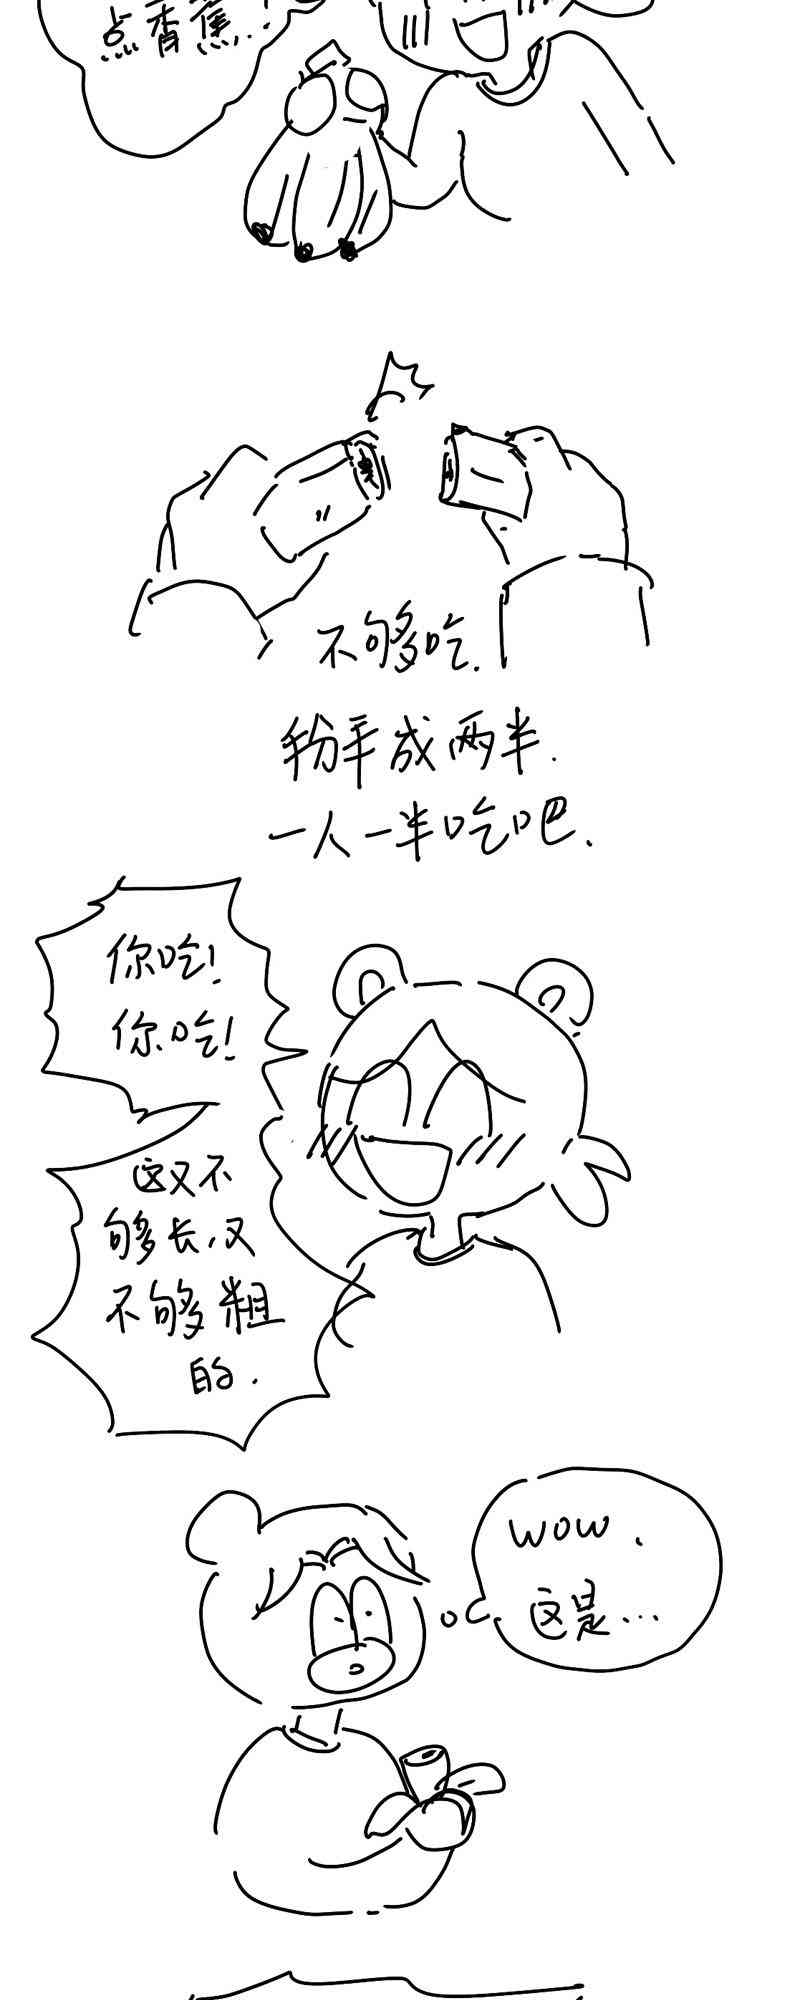 点香蕉..!
不够吃.
掰成两半.
一人一半吃吧.
你吃!
你吃!
这又不
够长,又
不够粗
的.
wow.
这是...